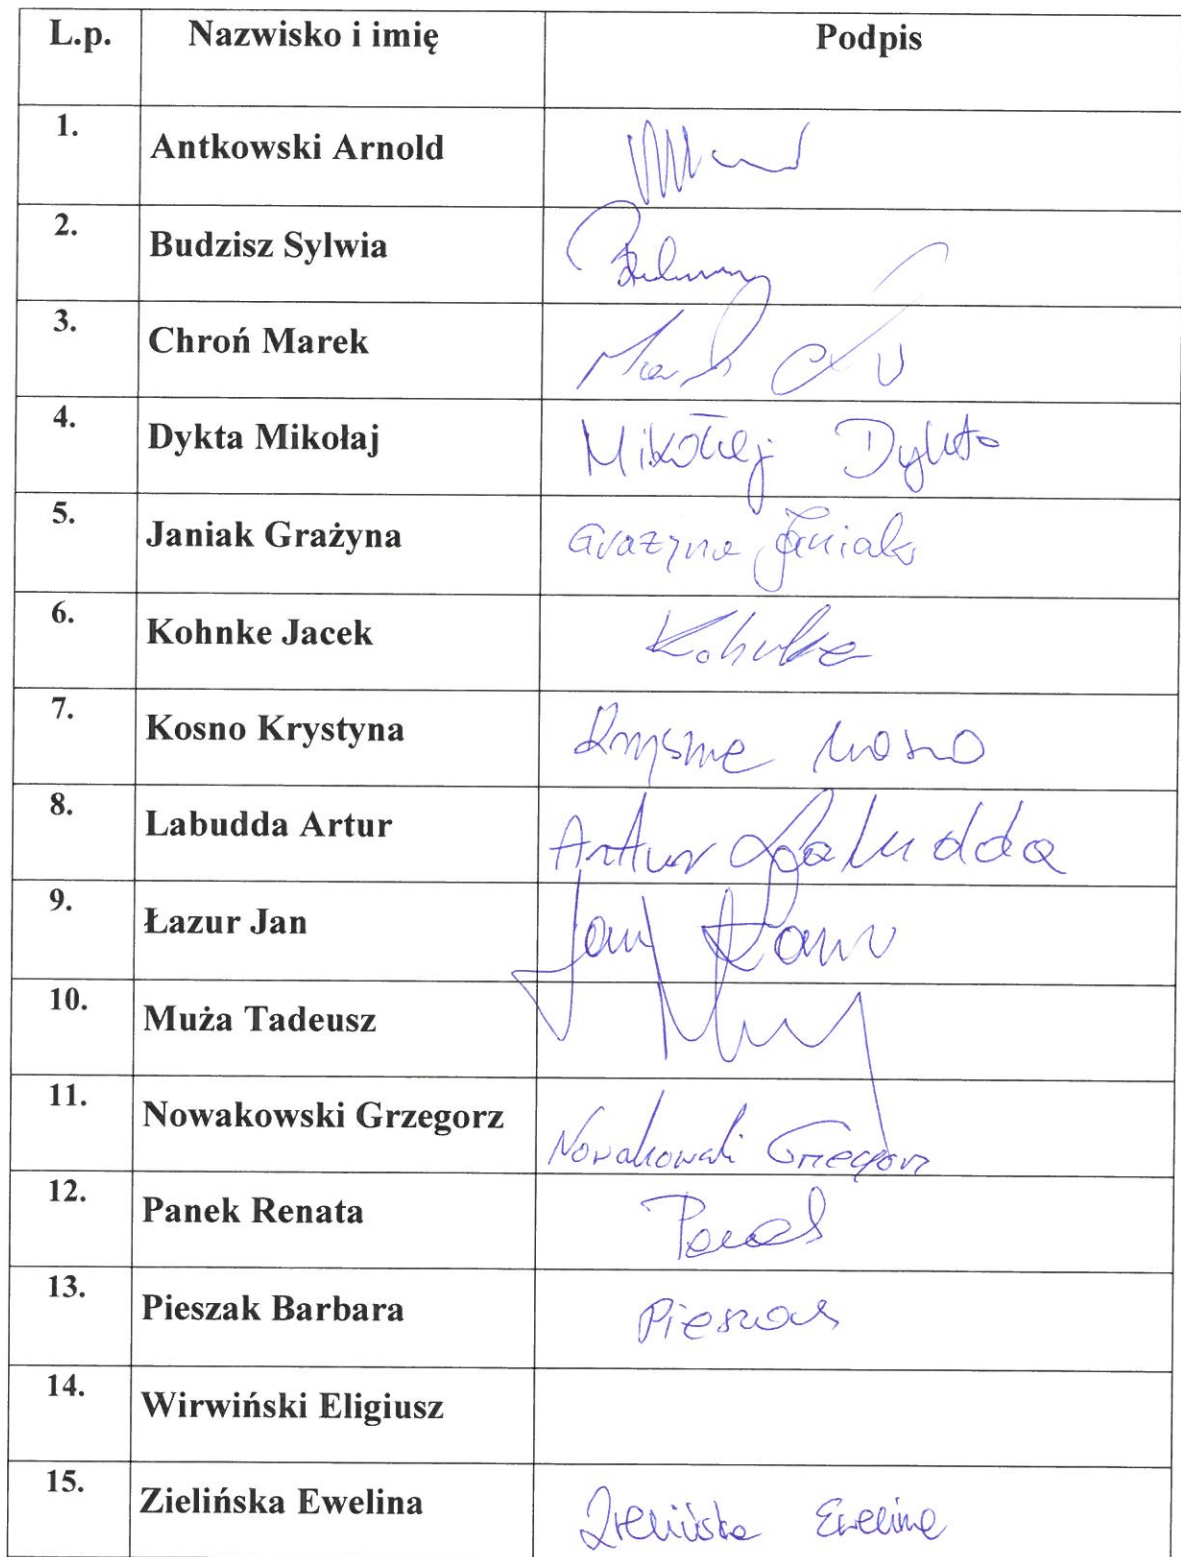 L.p. Nazwisko i imię Podpis
1. Antkowski Arnold
2. Budzisz Sylwia
3. Chroń Marek Marek
4. Dykta Mikołaj Mikołaj Dykta
5. Janiak Grażyna Grażyna Janiak
6. Kohnke Jacek Kohnke
7. Kosno Krystyna Krystyna Kosno
8. Labudda Artur Artur Labudda
9. Łazur Jan Jan Łazur
10. Muża Tadeusz
11. Nowakowski Grzegorz Nowakowski Grzegorz
12. Panek Renata Panek
13. Pieszak Barbara Pieszak
14. Wirwiński Eligiusz
15. Zielińska Ewelina Zielińska Ewelina